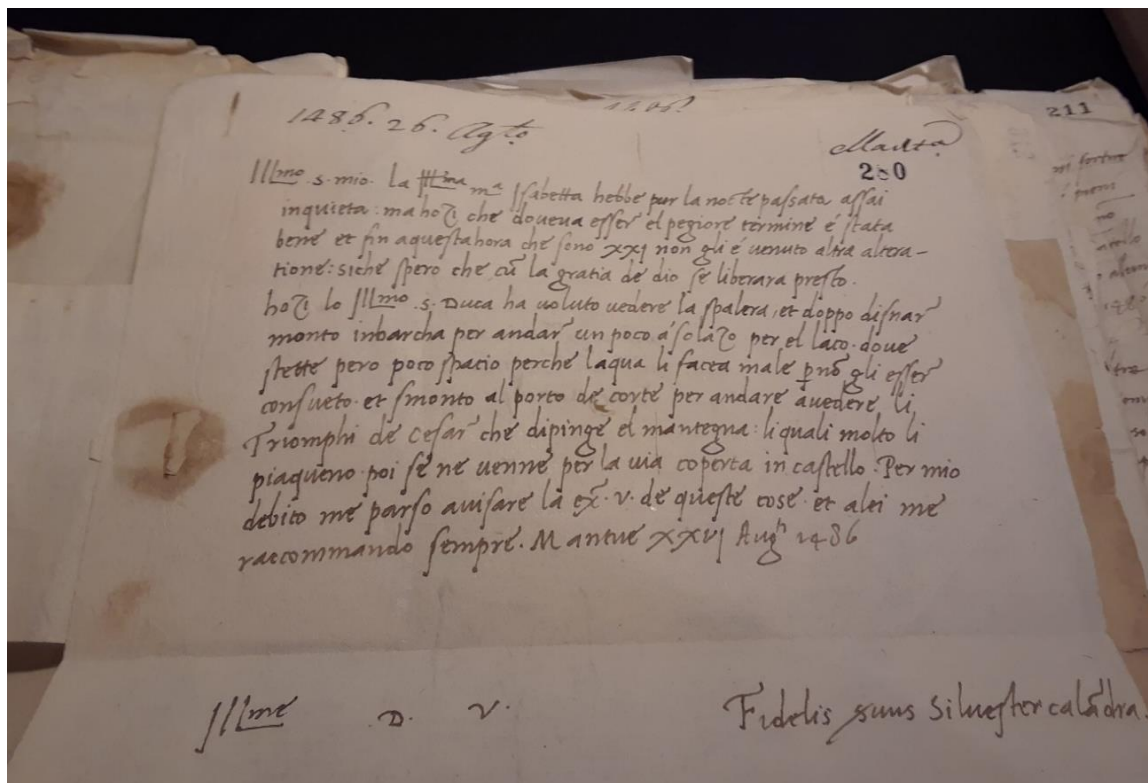 1486. 26. Agto
Manta
280
211
Illmo. s. mio. la Illma ma Isabetta hebbe pur la nocte passata assai
inquieta: ma hozi che doveva esser el pegiore termine é stata
bene et fin aquesta hora che sono XXI non gli é venuto altra altera-
tione: siche spero che cū la gratia de dio se liberara presto.
hozi lo Illmo. s. Duca ha voluto vedere la spalera, et doppo disnar
monto inbarcha per andar un poco á solazo per el laco. dove
stette pero poco spacio perche laqua li facea male p nō gli esser
consueto. et smonto al porto de corte per andare avedere li
Triomphi de Cesar che dipinge el mantegna: liquali molto li
piaqueno. poi se ne venne per la via coperta in castello. Per mio
debito me parso avisare la ex. v. de queste cose. et alei me
raccommando sempre. Mantue XXVI Augti 1486
Illme D. V. Fidelis suus Silvester calādra.